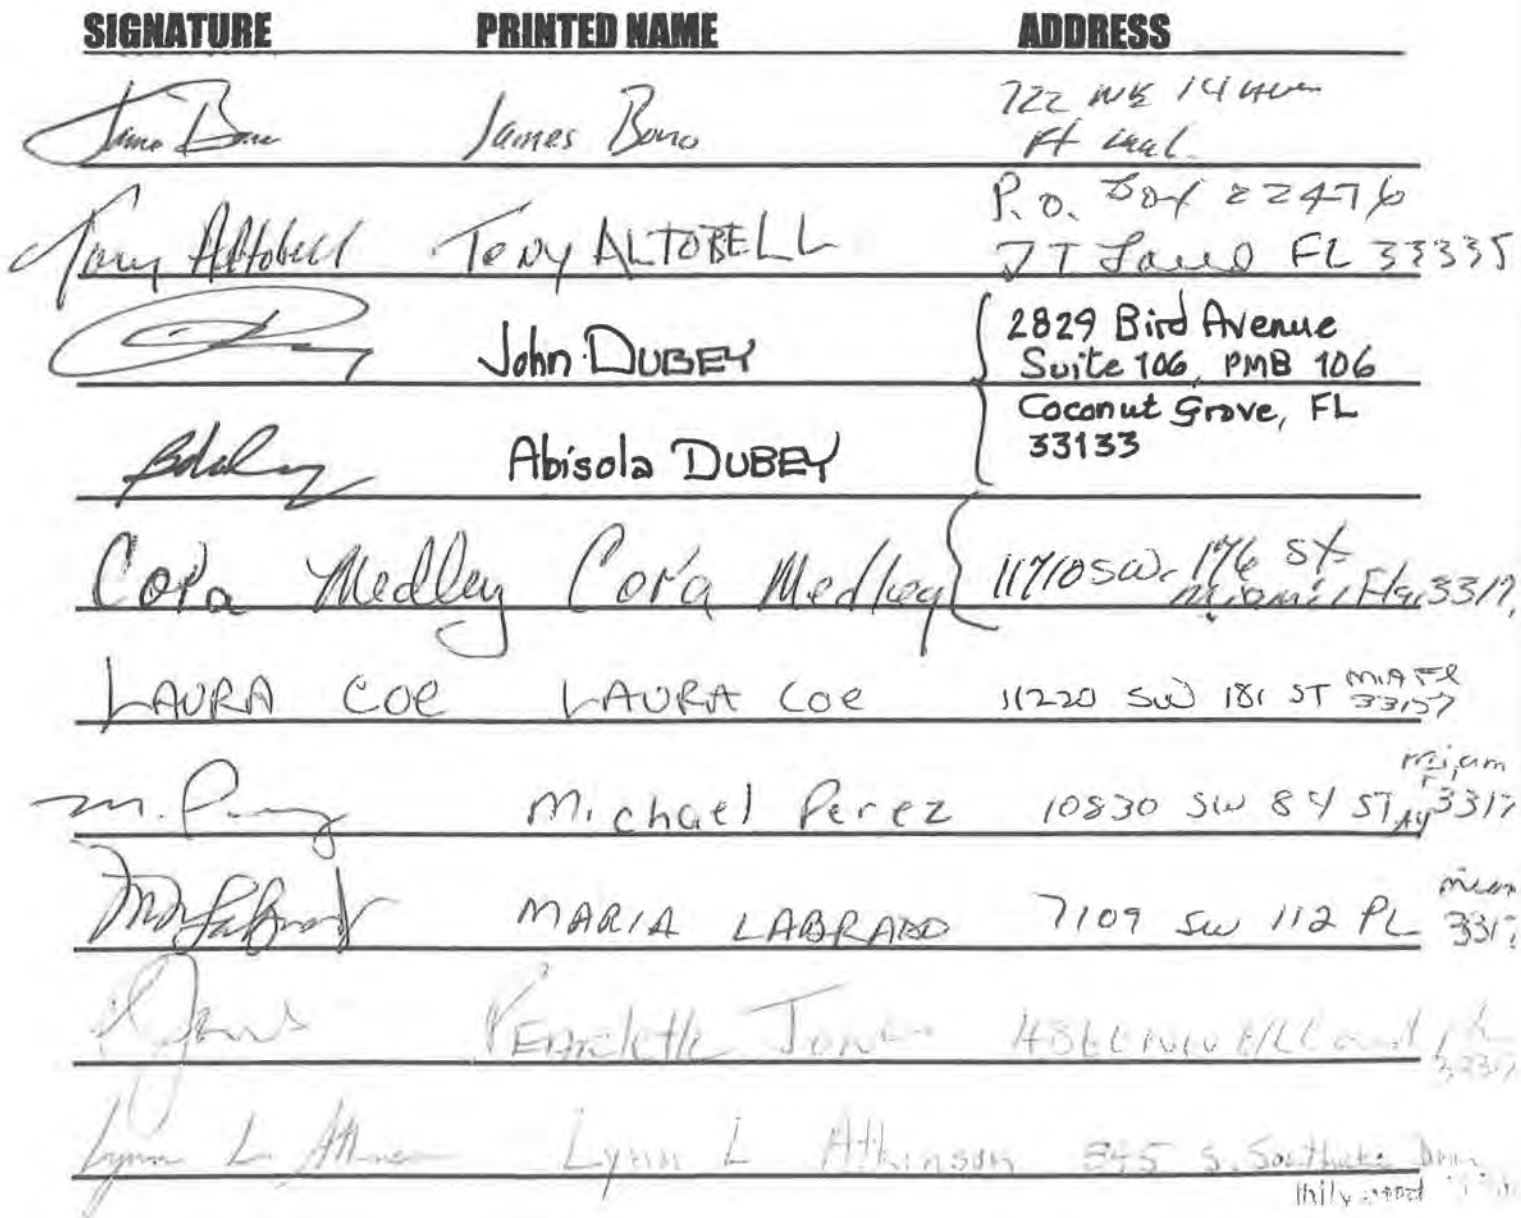 SIGNATURE PRINTED NAME ADDRESS
James Bono James Bono 722 NE 14 Ave
Ft Laud.
Tony Altobell Tony ALTOBELL P.O. Box 22476
FT Laud FL 33335
John DUBEY 2829 Bird Avenue
Suite 106, PMB 106
Abisola DUBEY Coconut Grove, FL
33133
Cora Medley Cora Medley 11710 SW. 176 St
Miami, Fla, 3317
LAURA COE LAURA COE 11220 SW 181 ST MIA FL
33157
M. Michael Perez 10830 SW 84 ST
3317
MARIA LABRADO 7109 SW 112 PL
331
Jones
Lynn L Lynn L Atkinson 845 S. Southlake